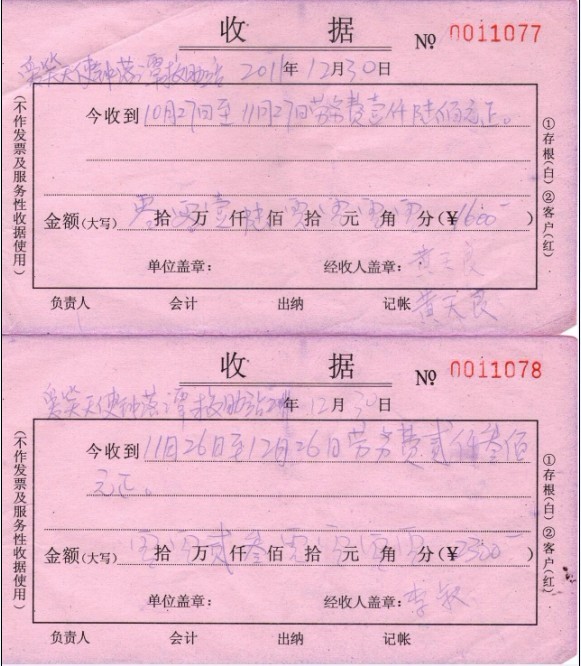 收 据 № 0011077
天使钟落潭救助站 2011年12月30日
今收到10月27日至11月27日劳务费壹仟陆佰元正。
金额(大写) 零拾零万壹仟陆佰零拾零元零角零分(¥1600—)
黄天良
单位盖章: 经收人盖章:
负责人 会计 出纳 记帐 黄天良
(不作发票及服务性收据使用)
①存根(白)②客户(红)
收 据 № 0011078
天使钟落潭救助站2011年12月30日
今收到11月26日至12月26日劳务费贰仟叁佰
元正。
金额(大写) 零拾零万贰仟叁佰零拾零元零角零分(¥2300—)
单位盖章: 经收人盖章:李
负责人 会计 出纳 记帐
(不作发票及服务性收据使用)
①存根(白)②客户(红)